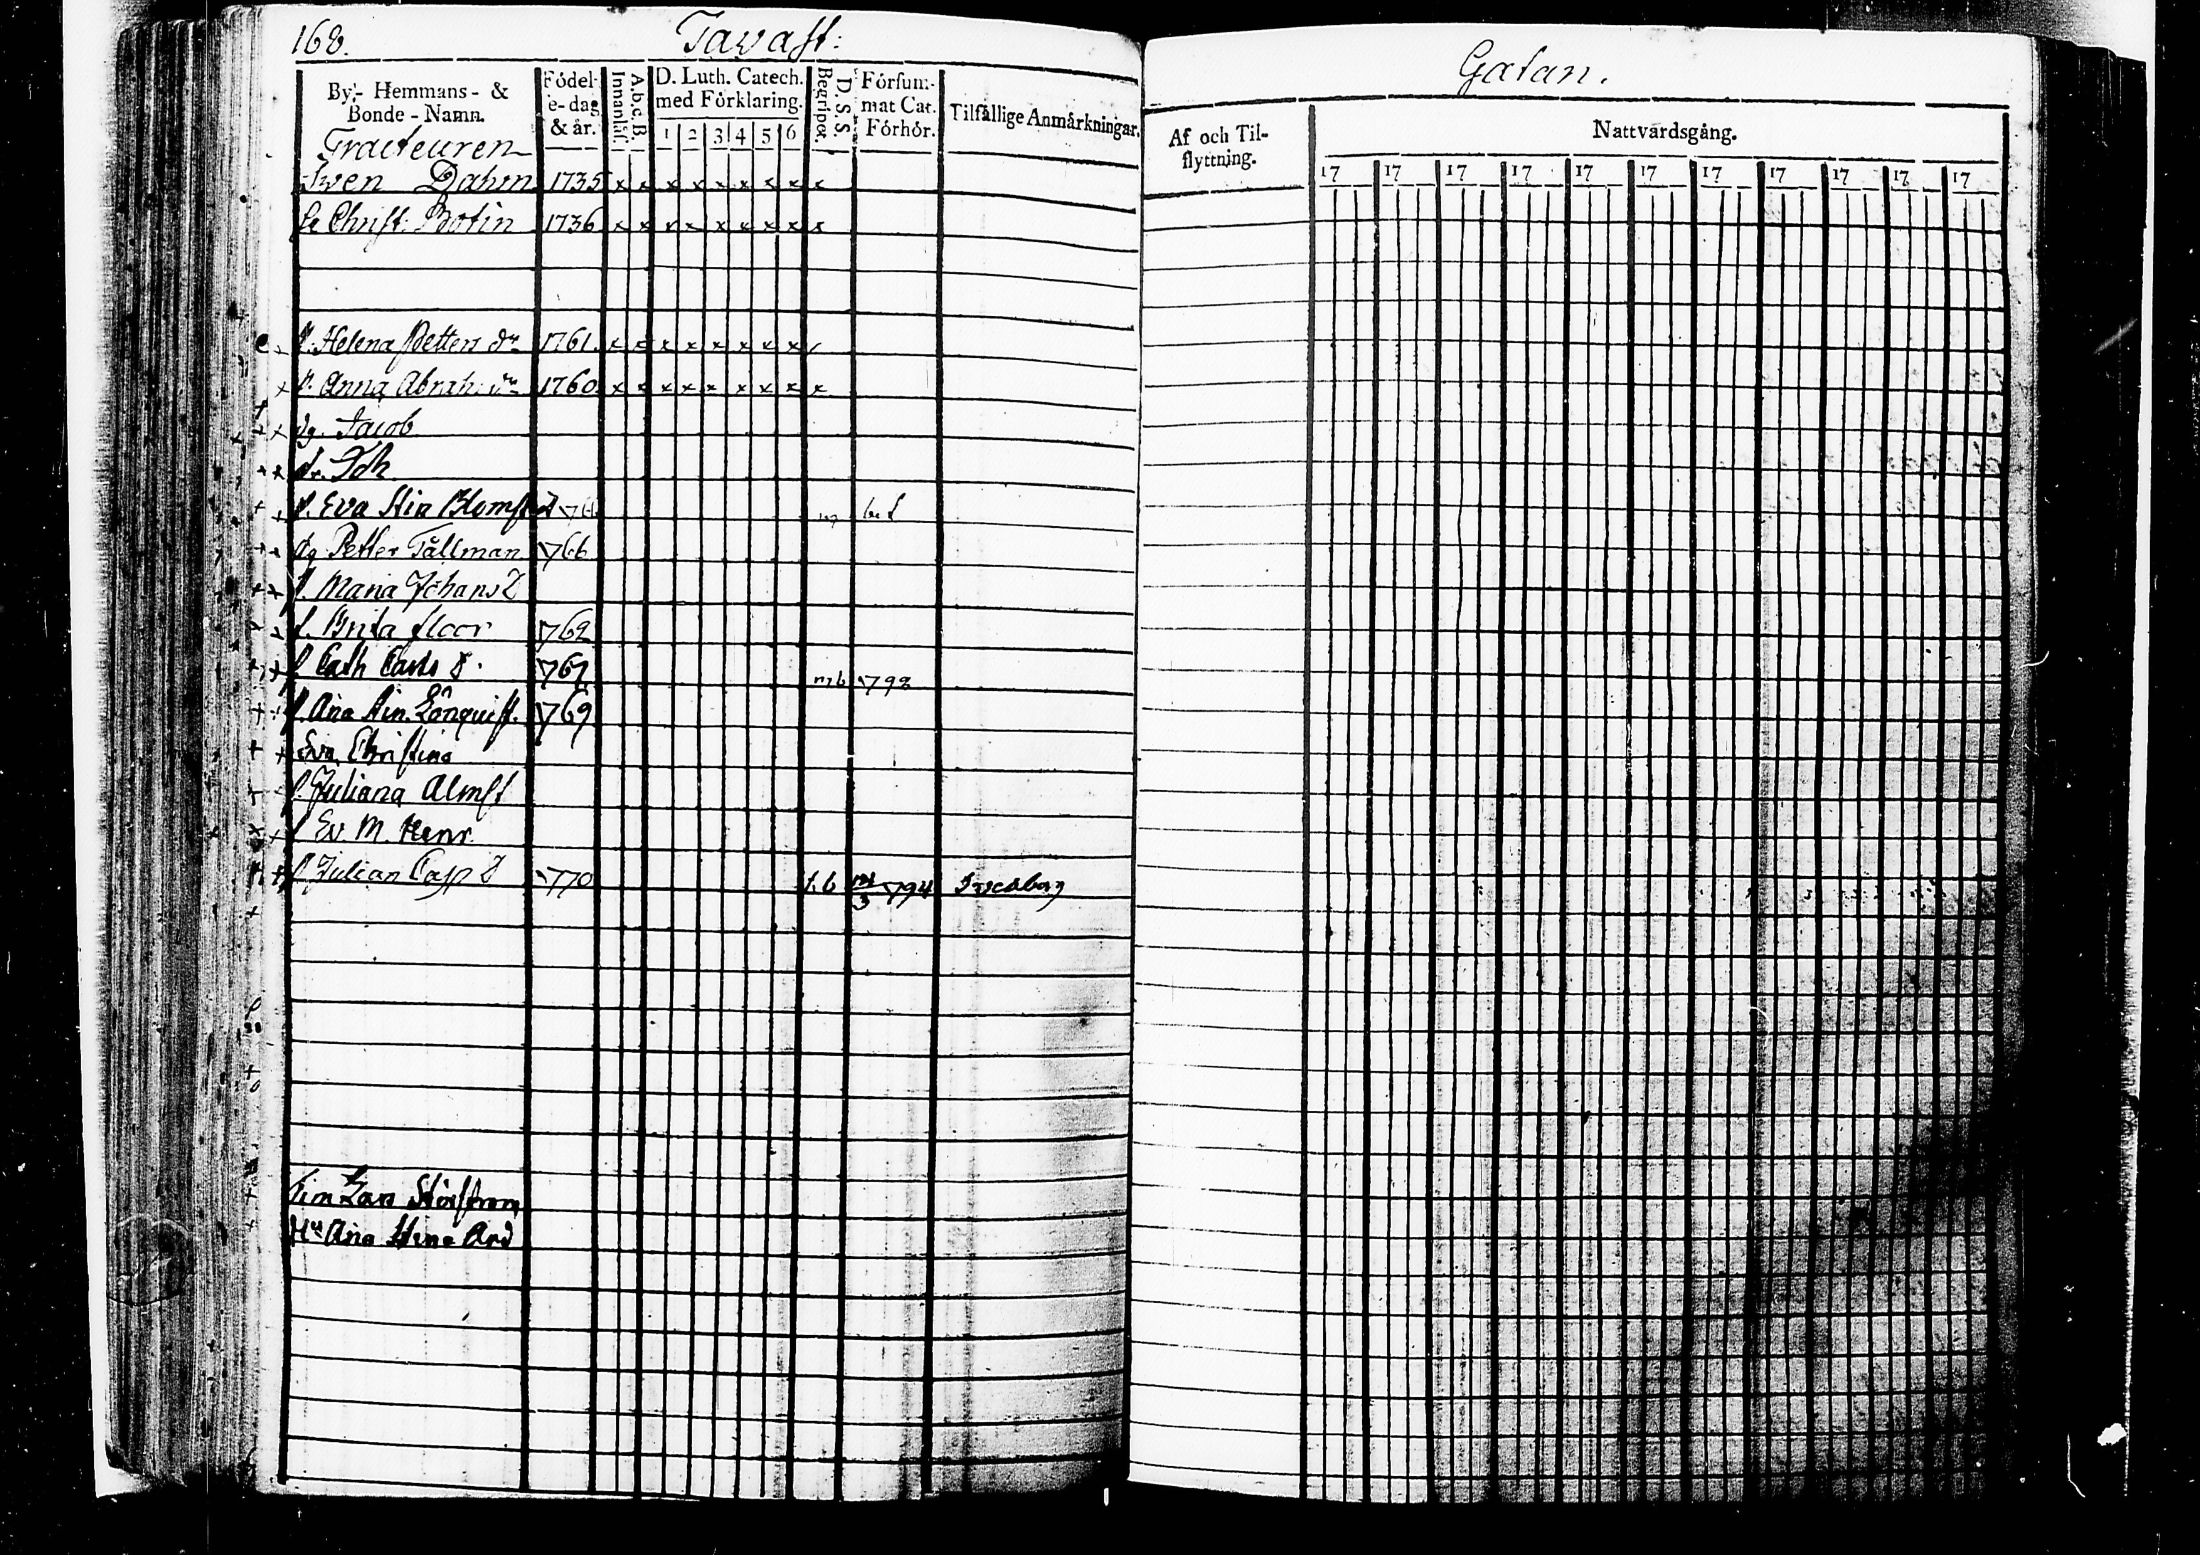 168.
Tavast:
By- Hemmans- &
Bonde-Namn.
Födel-
e-dag
& år.
Innanläs.
A.b.c.B.
D. Luth. Catech.
med Förklaring.
1 2 3 4 5 6
Begriper.
D. S. S.
Försum-
mat Cat.
Förhör.
Tilfällige Anmärkningar.
Tracteuren
Swen Dahm 1735 x x x x x x x x x
Christ: Botin 1736 x x x x x x x x x
p. Helena Petters dr 1761 x x x x x x x x
p. Anna Abrah: dr 1760 x x x x x x x x x
dg. Jacob
dr. Joh
p. Eva Stin
dg Petter Tållman 766
p. Maria Johans D
p. Brita floor 762
p Cath Carls D. 767 798
p. Ana Stin. Lönquist. 769
Eva Christina
p. Juliana Almst
p Ev M. Henr.
p Julian Casp D 770 794
Lars
Ana Stina
Gatan.
Af och Til-
flyttning.
Nattvardsgång.
17 17 17 17 17 17 17 17 17 17 17